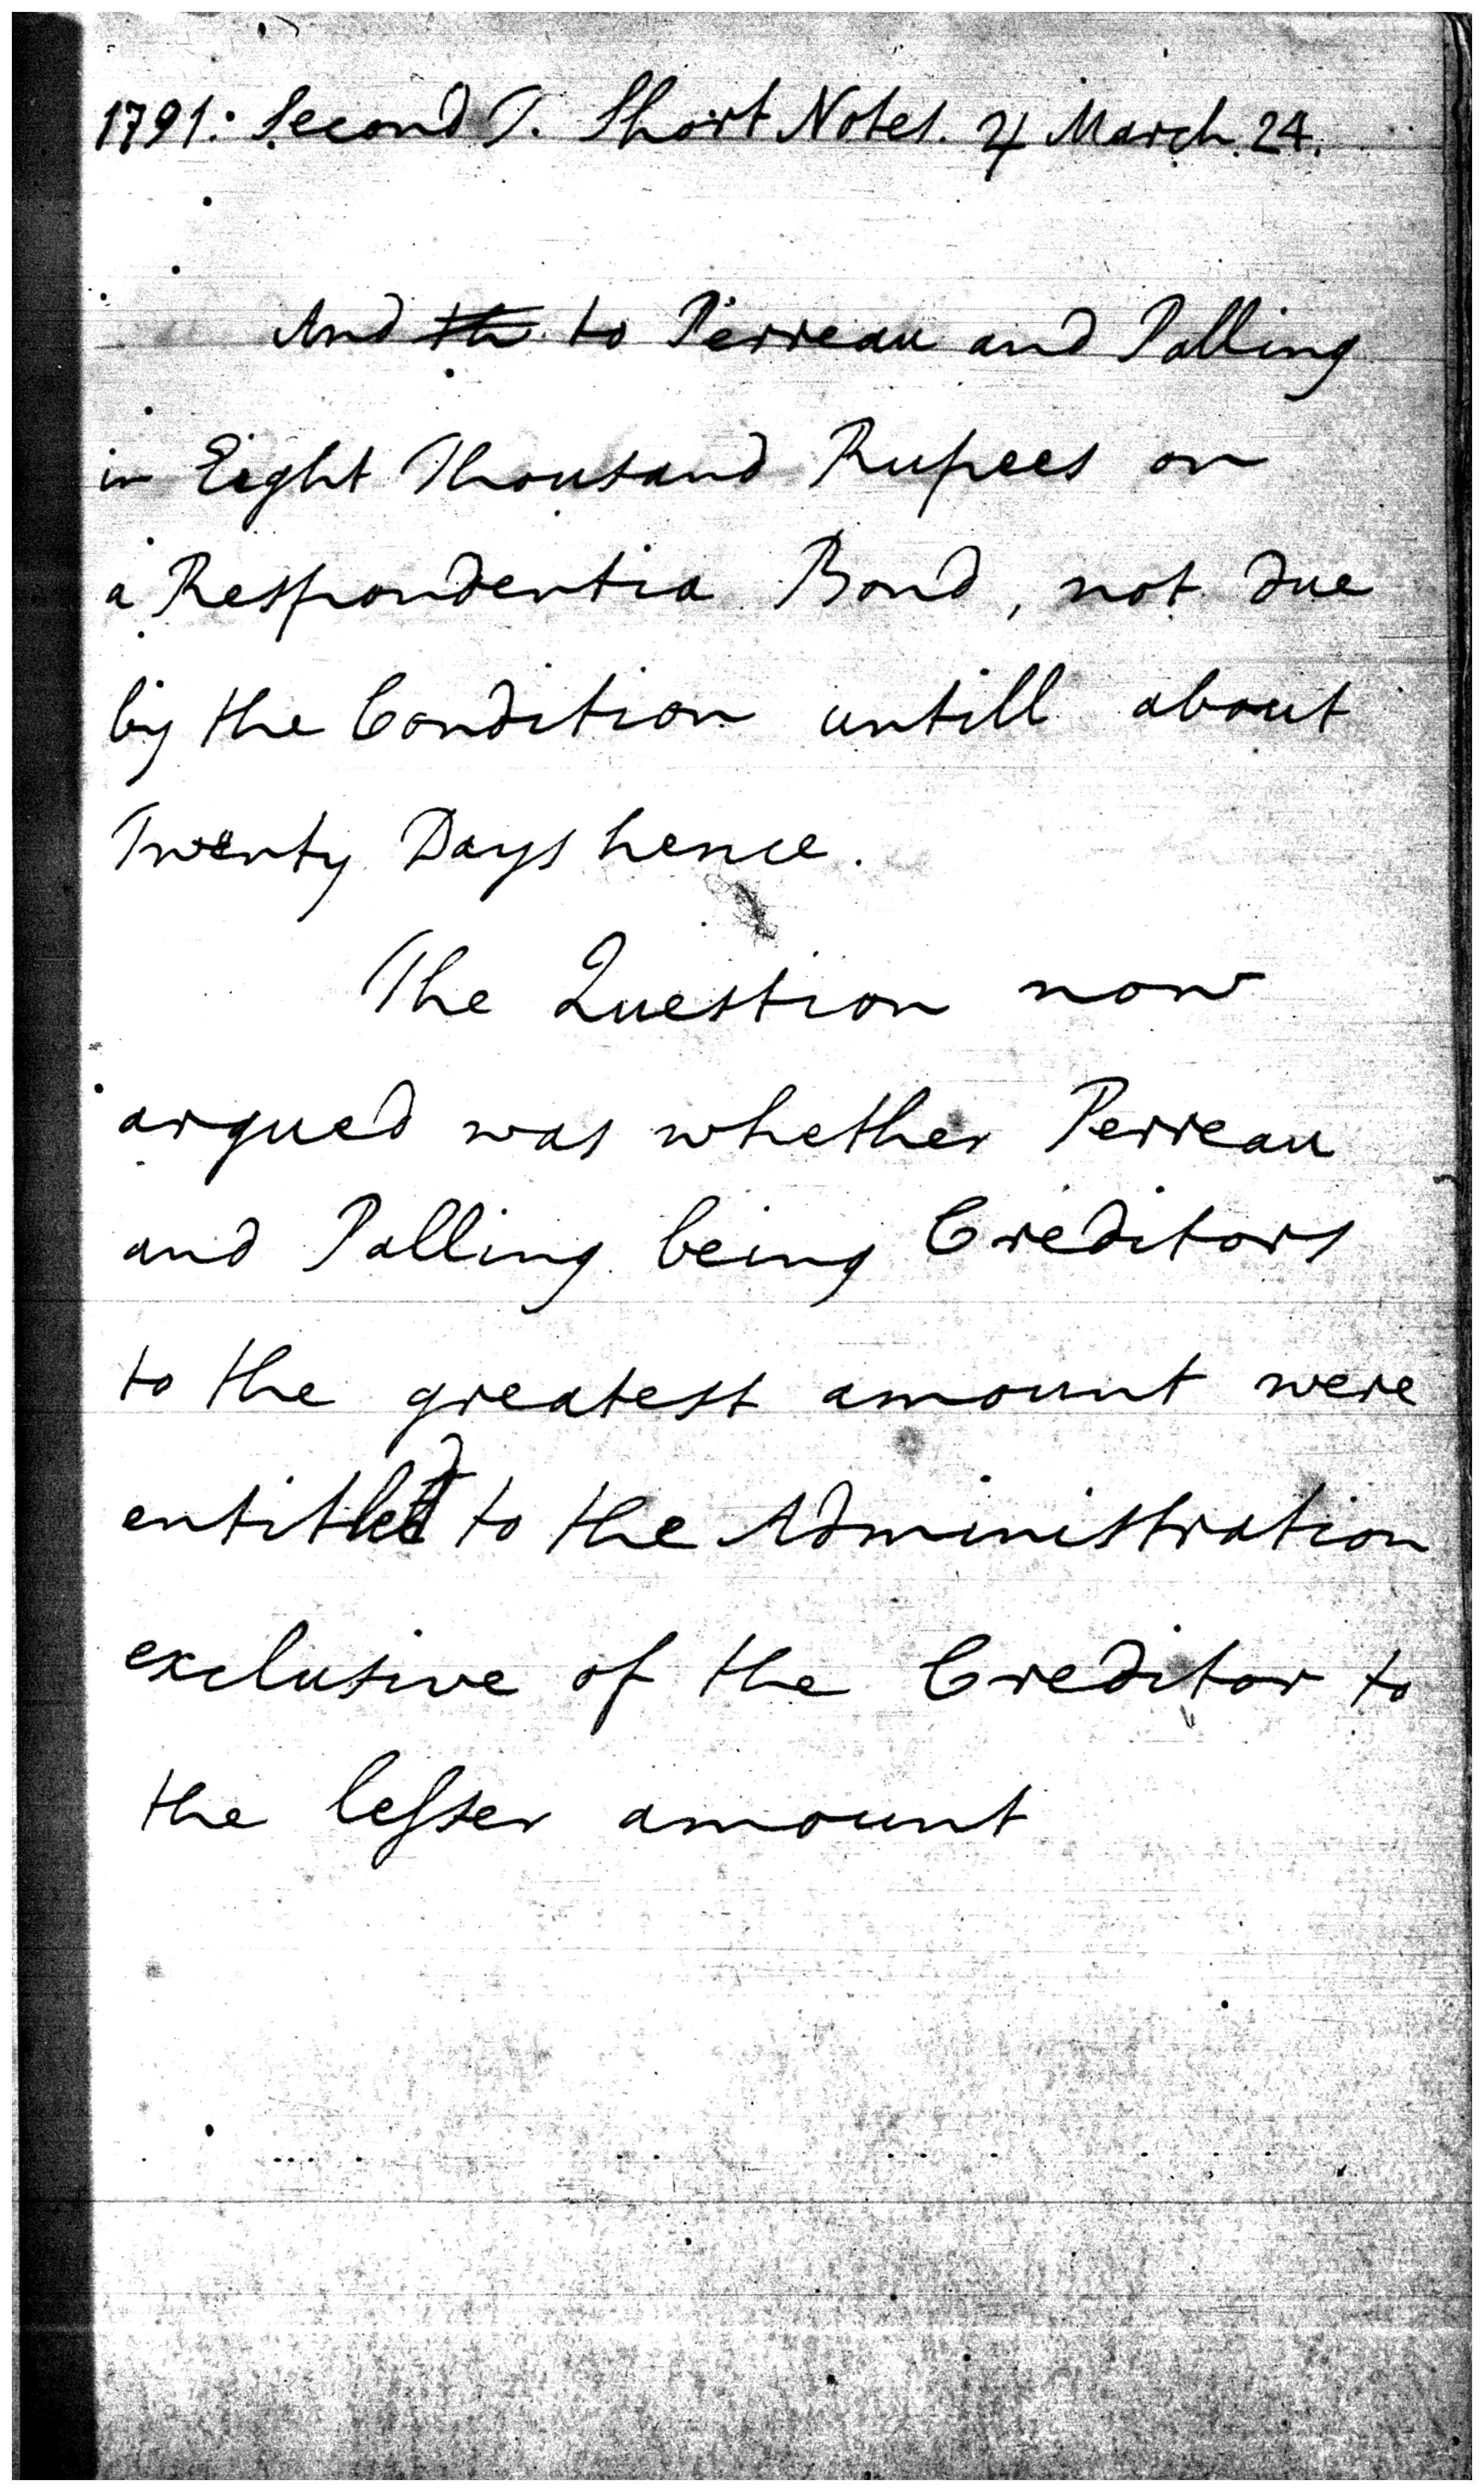 1791: Second T. Short Notes. ♃ March 24.
And th to Perreau and Palling
in Eight Thousand Rupees on
a Respondentia Bond, not due
by the Condition untill about
Twenty Days hence.
The Question now
argued was whether Perreau
and Palling being Creditors
to the greatest amount were
entitled to the Administration
exclusive of the Creditor to
the leſser amount